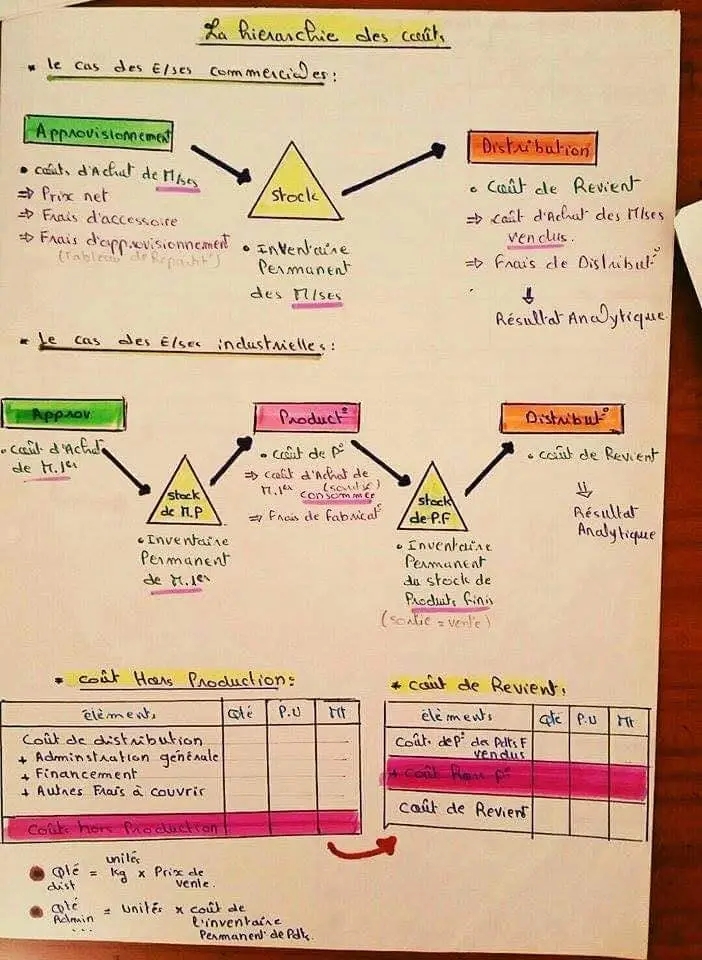 La hierarchie des coûts
* le cas des E/ses commerciales :
Approvisionnement
• coûts d'Achat de M/ses
⇒ Prix net
⇒ Frais d'accessoire
⇒ Frais d'approvisionnement
(Tableau de Répartit°)
Stock
• Inventaire
Permanent
des M/ses
Distribution
• Coût de Revient
⇒ coût d'Achat des M/ses
vendus.
⇒ Frais de Distribut°
⇓
Résultat Analytique
* Le cas des E/ses industrielles :
Approv
• coût d'Achat
de M.1er
stock
de M.P
• Inventaire
Permanent
de M.1er
Product°
• coût de P°
⇒ coût d'Achat de
M.1er (sortie)
consommée
⇒ Frais de fabricat°
stock
de P.F
• Inventaire
Permanent
du stock de
Produits finis
(sortie = vente)
Distribut°
• coût de Revient
⇓
Résultat
Analytique
* coût Hors Production :
éléments Qté P.U Mt
Coût de distribution
+ Adminstration génerale
+ Financement
+ Autres Frais à couvrir
Coûts hors Production
* coût de Revient :
éléments Qté P.U Mt
Coût de P° des Pdts F
vendus
+ Coût Hors P°
Coût de Revient
Qté dist = unités Kg x Prix de vente.
Qté Admin ... = unités x coût de
l'inventaire
Permanent de Pdts.